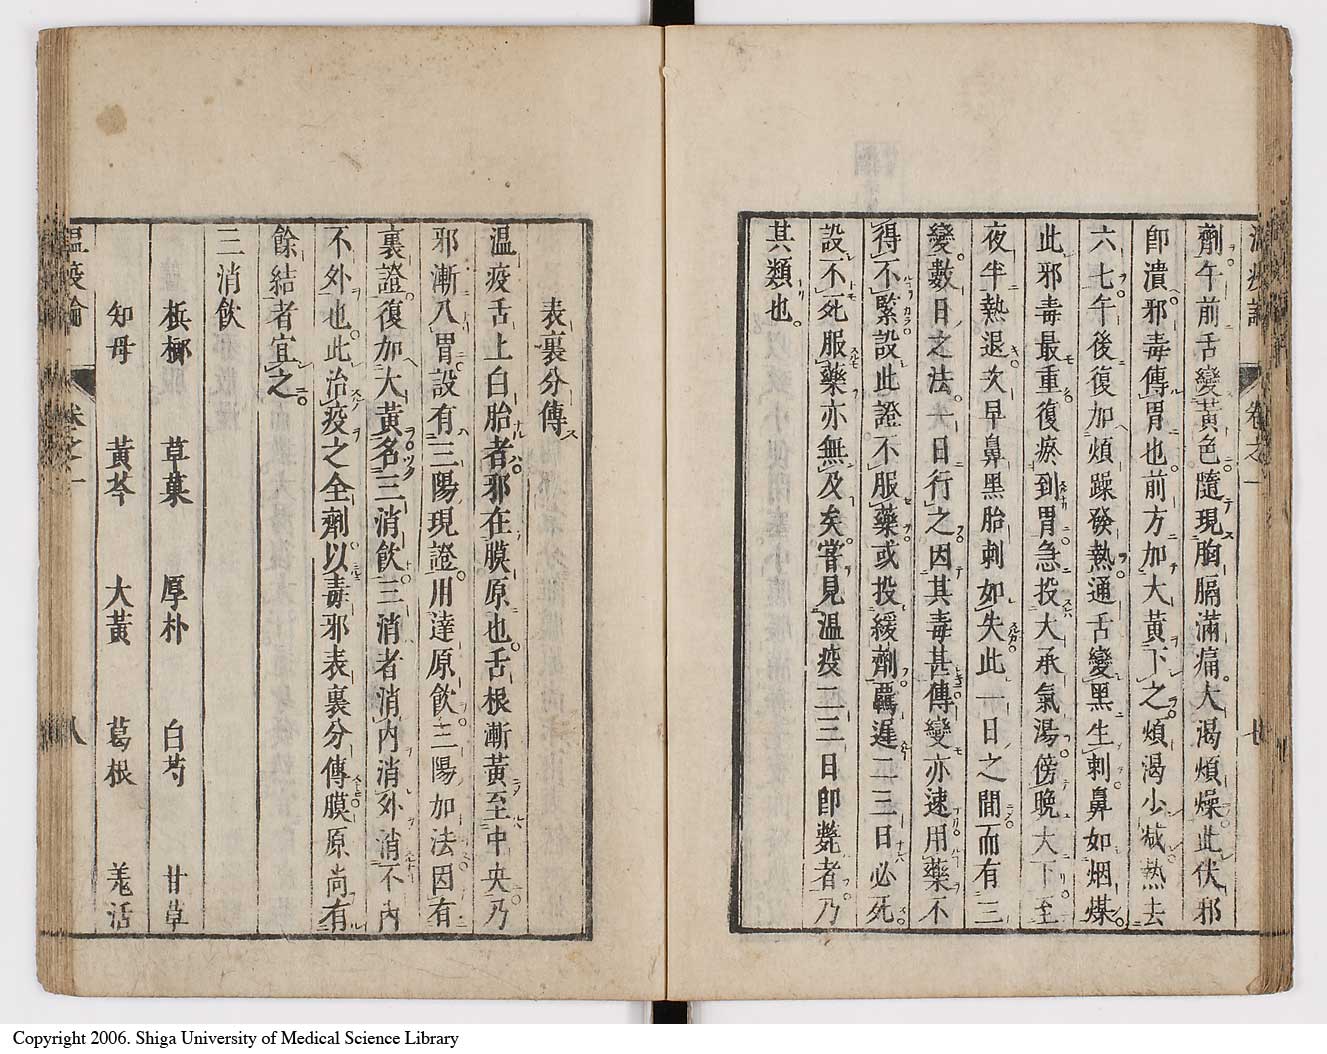 溫疫論 卷之一
劑午前舌變黃色隨現胸膈滿痛大渴煩燥此伏邪
卽潰邪毒傳胃也前方加大黃下之煩渴少减熱去
六七午後復加煩躁發熱通舌變黑生刺鼻如烟煤
此邪毒最重復瘀到胃急投大承氣湯傍晚大下至
夜半熱退次早鼻黑胎刺如失此一日之間而有三
變數日之法一日行之因其毒甚傳變亦速用藥不
得不緊設此證不服藥或投緩劑羈遲二三日必死
設不死服藥亦無及矣嘗見溫疫二三日卽斃者乃
其類也
表裏分傳
溫疫舌上白胎者邪在膜原也舌根漸黃至中央乃
邪漸入胃設有三陽現證用達原飮三陽加法因有
裏證復加大黃名三消飮三消者消內消外消不內
不外也此治疫之全劑以毒邪表裏分傳膜原尚有
餘結者宜之
三消飮
梹榔 草菓 厚朴 白芍 甘草
知母 黃芩 大黃 葛根 羗活
溫疫論 卷之一 八
Copyright 2006. Shiga University of Medical Science Library